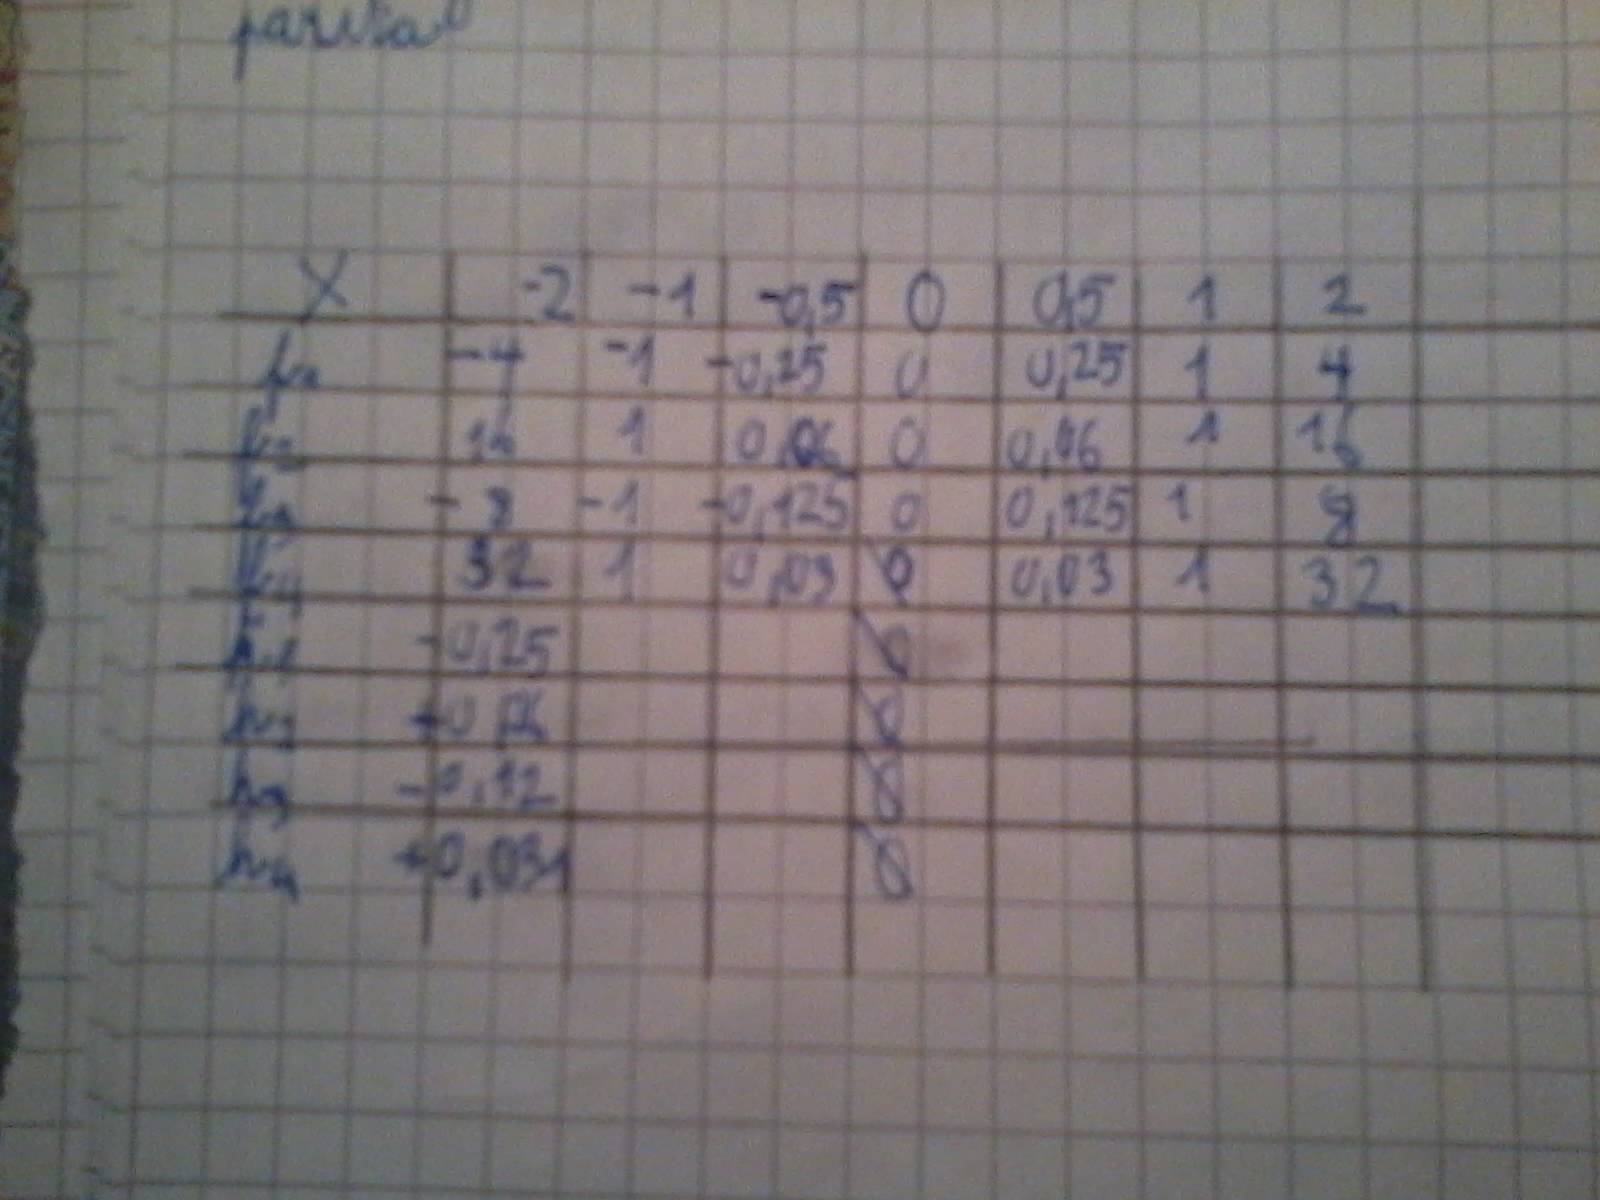 X -2 -1 -0,5 0 0,5 1 2
-4 -1 -0,25 0 0,25 1 4
16 1 0,06 0 0,06 1 16
-8 -1 -0,125 0 0,125 1 8
32 1 0,03 0 0,03 1 32
-0,25 0
h2 0
h3 -0,12 0
h4 +0,031 0